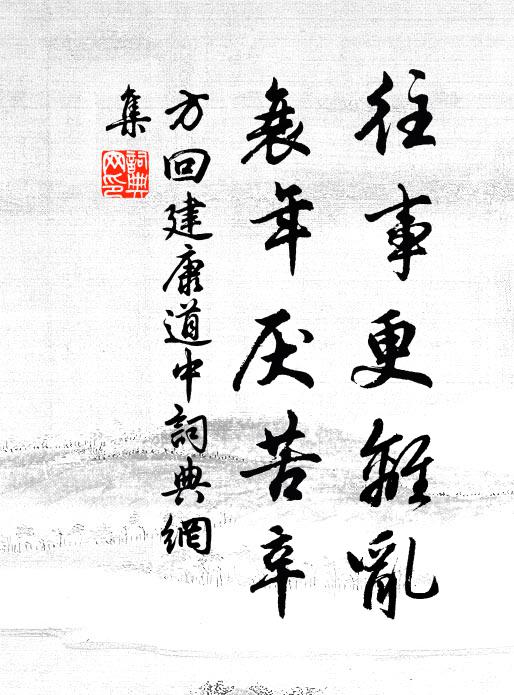 往事更離亂
衰年厌苦辛
方回建康道中詞典網
集
詞典
网印